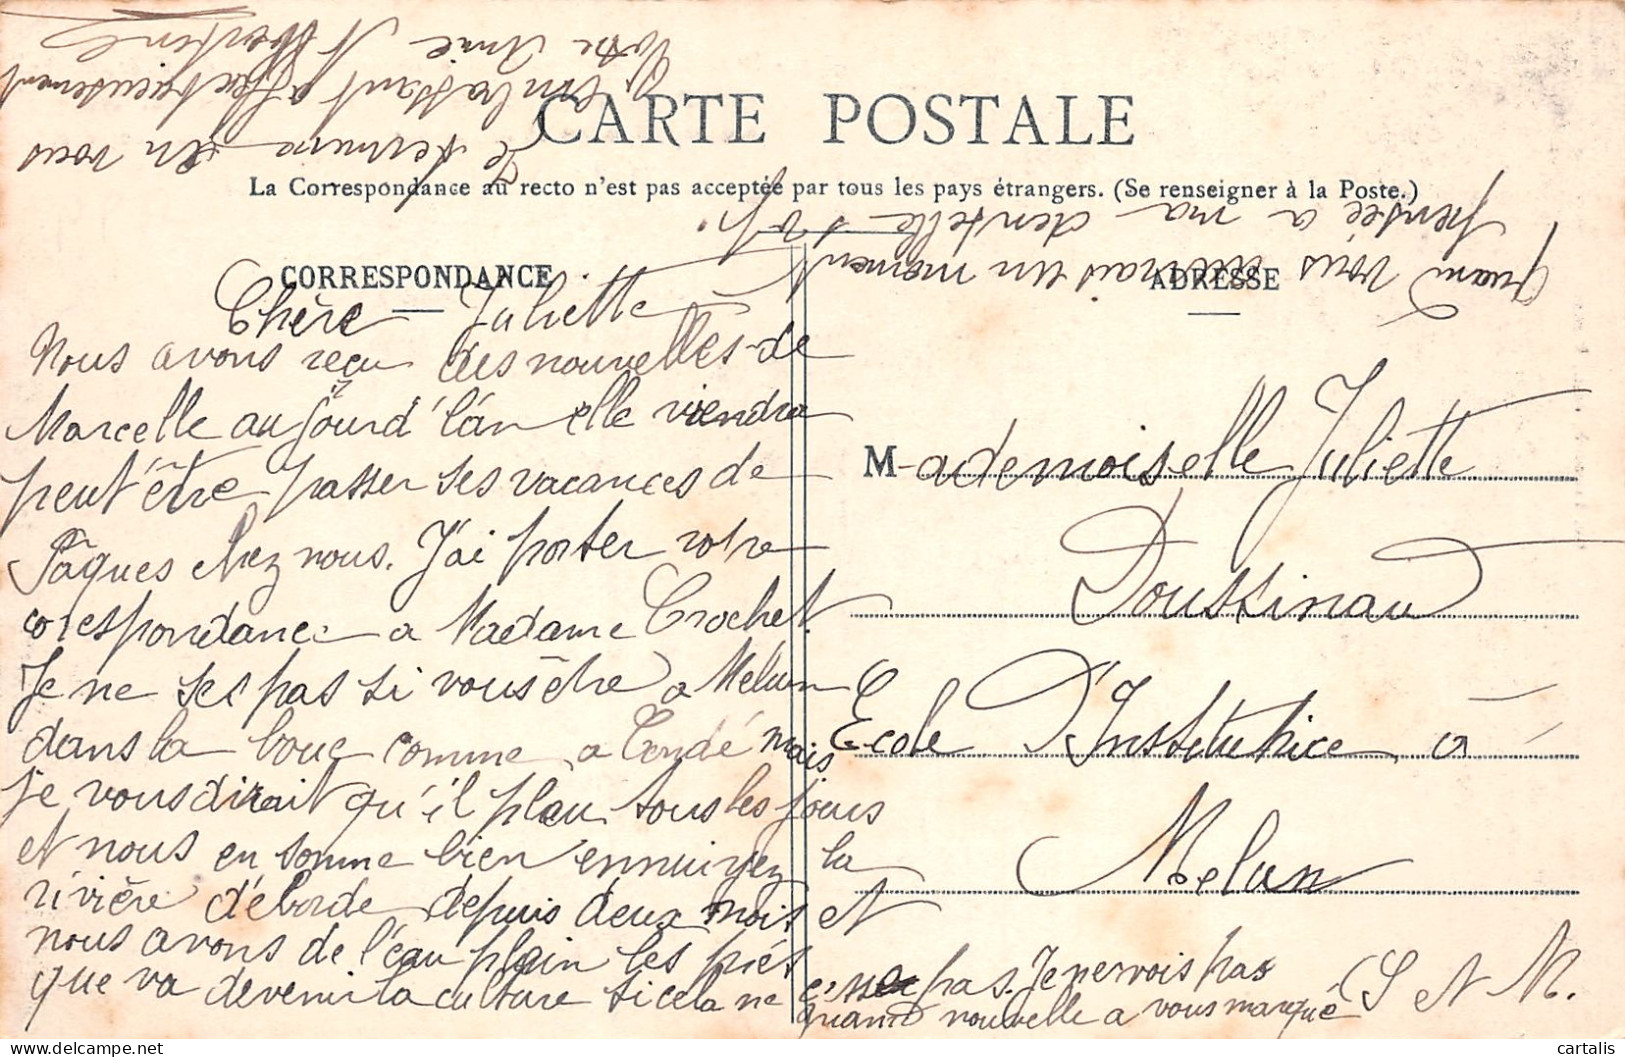 CARTE POSTALE
La Correspondance au recto n'est pas acceptée par tous les pays étrangers. (Se renseigner à la Poste.)
CORRESPONDANCE
Chère Juliette
Nous avons reçu des nouvelles de
Marcelle aujourd'lán elle viendra
peut être passer ses vacances de
Pâques chez nous. J'ai porter votre
corespondance a Madame Crochet.
Je ne ses pas si vous être a Melun
dans la boue comme a Condé mais
je vous dirait qu'il pleu tous les jours
et nous en somme bien ennuiyez la
rivière déborde depuis deux mois et
nous avons de l'éau plain les piés
que va devenir la culture si cela ne
pas. Je ne vois pas
quand nouvelle a vous marqué
ADRESSE
M-ademoiselle Juliette
Doussinau
Ecole D'Institutrice a
Melun
(S et M.
Quand vous un moment
pensée a ma dentelle s v p.
Je termine en vous
embrassant affectueusement
Votre Amie